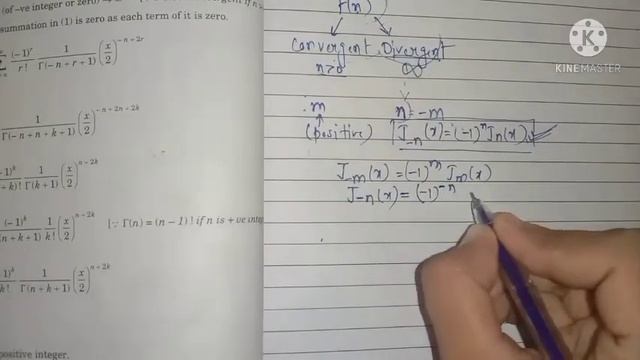 (of –ve integer or zero)
summation in (1) is zero as each term of it is zero.
(-1)^r / r! 1 / Γ(–n + r + 1) (x/2)^(–n + 2r)
1 / Γ(–n + n + k + 1) (x/2)^(–n + 2n + 2k)
1 / Γ(k + 1) (x/2)^(n + 2k)
(–1)^k (x/2)^(n + 2k) [∵ Γ(n) = (n – 1) ! if n is + ve
1 / Γ(n + k + 1) (x/2)^(n + 2k)
positive integer.
Γ(n)
Convergent Divergent
n>0 ∞
:m n=-m
(positive) J-n(x)=(-1)^n Jn(x)
J-m(x) = (-1)^m Jm(x)
J-n(x) = (-1)^-n
KINEMASTER